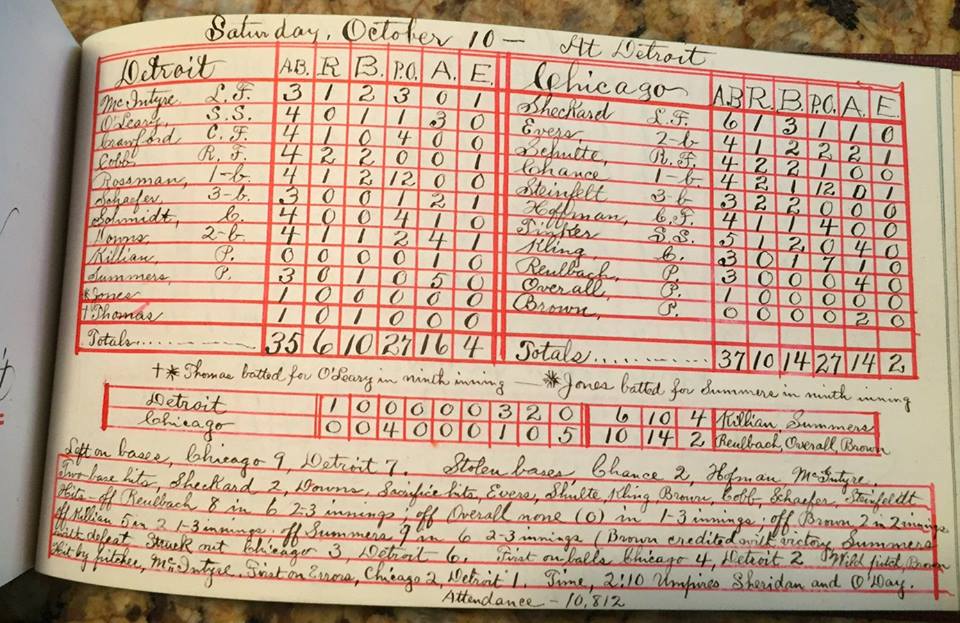 Saturday, October 10 — At Detroit
Detroit A.B. R B. P.O. A. E.
McIntyre L.F. 3 1 2 3 0 1
O'Leary, S.S. 4 0 1 1 3 0
Crawford C.F. 4 1 0 4 0 0
Cobb R.F. 4 2 2 0 0 1
Rossman, 1-b. 4 1 2 12 0 0
Schaefer 3-b. 3 0 0 1 2 1
Schmidt, C. 4 0 0 4 1 0
Downs, 2-b. 4 1 1 2 4 1
Killian, P. 0 0 0 0 1 0
Summers, P. 3 0 1 0 5 0
*Jones 1 0 0 0 0 0
†Thomas 1 0 1 0 0 0
Totals.......... 35 6 10 27 16 4
Chicago A.B R. B. P.O. A. E.
Sheckard L.F. 6 1 3 1 1 0
Evers 2-b 4 1 2 2 2 1
Schulte, R.F. 4 2 2 1 0 0
Chance 1-b. 4 2 1 12 0 1
Steinfelt 3-b 3 2 2 0 0 0
Hoffman, C.F 4 1 1 4 0 0
Tinker S.S. 5 1 2 0 4 0
Kling C. 3 0 1 7 1 0
Reulbach, P. 3 0 0 0 4 0
Overall, P. 1 0 0 0 0 0
Brown, P. 0 0 0 0 2 0
Totals............... 37 10 14 27 14 2
†* Thomas batted for O'Leary in ninth inning — * Jones batted for Summers in ninth inning
Detroit 1 0 0 0 0 0 3 2 0 6 10 4 Killian, Summers
Chicago 0 0 4 0 0 0 1 0 5 10 14 2 Reulbach, Overall, Brown
Left on bases, Chicago 9, Detroit 7. Stolen bases, Chance 2, Hofman, McIntyre.
Two base hits, Sheckard 2, Downs, Sacrifice hits, Evers, Shulte, Kling Brown, Cobb Schaefer Steinfeldt
Hits-off Reulbach 8 in 6 2-3 innings; off Overall none (0) in 1-3 innings; off Brown, 2 in 2 innings
off Killian 5 in 2 1-3 innings; off Summers 9 in 6 2-3 innings (Brown credited with victory Summers
with defeat Struck out Chicago 3, Detroit 6. First on balls Chicago 4, Detroit 2 Wild pitch, Brown
Hit by pitcher, McIntyre. First on Errors, Chicago 2, Detroit 1. Time, 2:10 Umpires Sheridan and O'Day.
Attendance - 10,812